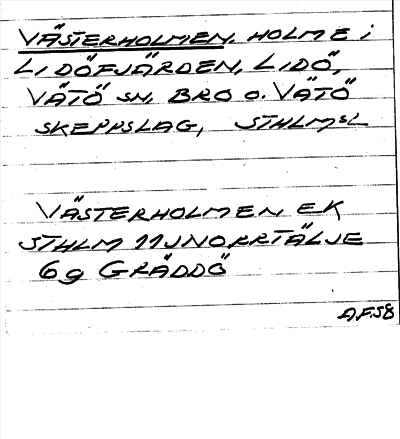 VÄSTERHOLMEN. HOLME i
LIDÖFJÄRDEN, LIDÖ,
VÄTÖ SN, BRO o. VÄTÖ
SKEPPSLAG, STHLMSL
VÄSTERHOLMEN EK
STHLM 11J NORRTÄLJE
6g GRÄDDÖ
A.F.58